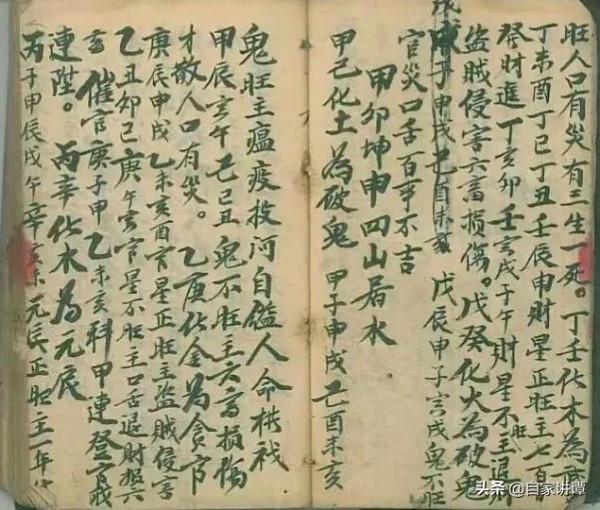 旺人口有災有三生一死。丁壬化木為
丁未酉丁巳丁丑壬辰申財星正旺主七百日
發財進丁亥卯壬寅戌子午財星不旺主退
盜賊侵害六畜損傷。戊癸化火為破鬼
戊子申戌己酉未亥 戊辰申子寅戌鬼不旺
官災口舌百事不吉
甲卯坤申四山屬水
甲己化土為破鬼 甲子申戌己酉未亥
鬼旺主瘟疫投河自縊人命横祸
甲辰寅午己巳丑鬼不旺主六畜損傷
才散人口有災。 乙庚化金為貪官
庚辰申戌乙未亥酉官星正旺主盜賊侵害
乙丑卯巳庚午寅官星不旺主口舌退財損六
畜 催官庚子甲乙未亥科甲連登官職
連陞。 丙辛化水為元辰
丙子申辰戌午辛亥未元辰正旺主一年
头条 @自家讲谭